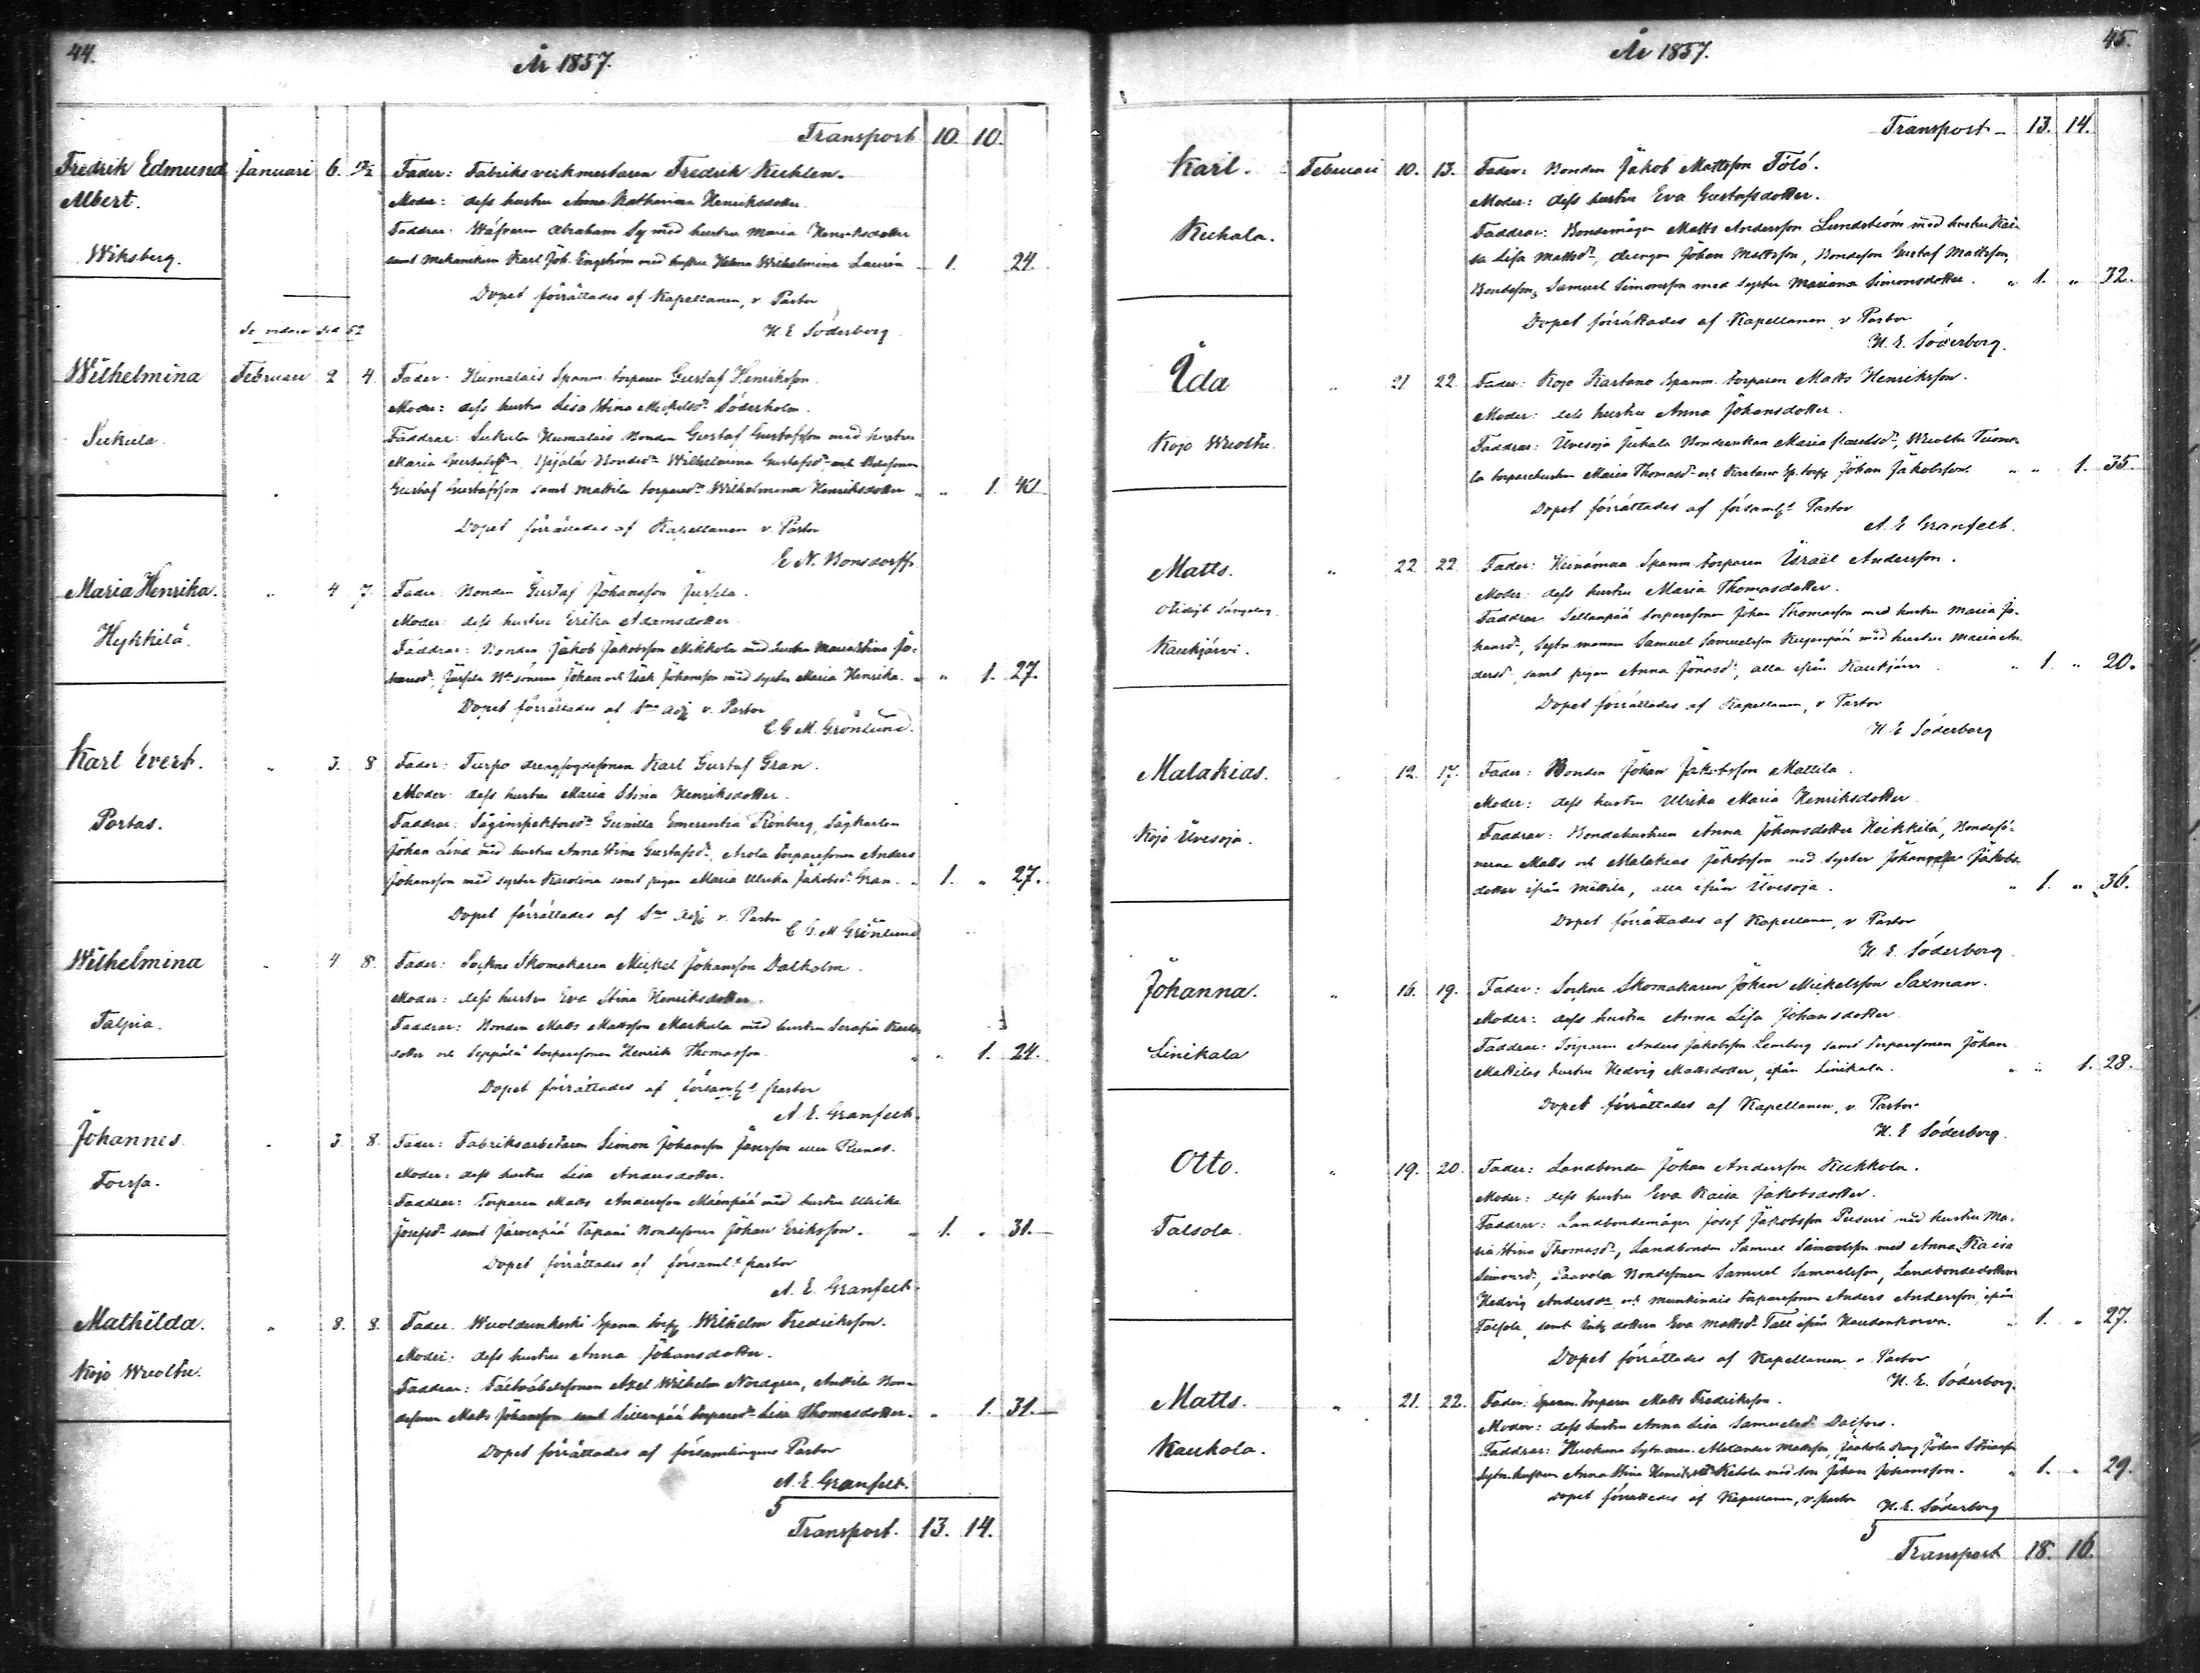 44.
År 1857.
Transport 10. 10.
Fredrik Edmund Januari 6. Fader: Fabriksverkmestaren Fredrik
Albert. Moder: dess hustru Anna Katharina Henriksdotter
Faddrar: Wäfvaren Abraham med hustru Maria Henriksdotter
Wiksberg. samt Mekanikern Karl Joh. Engström med hustru Helena Wilhelmina Laurén 1. 24.
Dopet förrättades af Kapellanen, v Pastor
Se vidare sid 52 H. E. Söderborg
Wilhelmina Februari 2 4. Fader: Humalais Spanm. torparen Gustaf Henriksson.
Moder: dess hustru Lisa Stina Söderholm.
Sukula Faddrar: Sukula Humalais Bonden Gustaf Gustafsson med hustru
Maria Wilhelmina Gustafsdr och
Gustaf Gustafsson samt Mattila Wilhelmina Henriksdotter " " 1. 40
Dopet förrättades af Kapellanen v. Pastor
E N. Bonsdorff.
Maria Henrika. " 4 7. Fader: Bonden Gustaf Johansson Jussila.
Hykkilä. Moder: dess hustru Erika Adamsdotter.
Faddrar: Bonden Jakob Jakobsson Mikkola med hustru Maria Stina Jo-
hansdr, Jussila Johan och Isak Johansson med syster Maria Henrika. " " 1. 27.
Dopet förrättades af v. Pastor
C. G. M. Grönlund.
Karl Evert. " 3. 8. Fader: Turpo Karl Gustaf Gran.
Moder: dess hustru Maria Stina Henriksdotter.
Portas. Faddrar: Gunilla Emerentia Sågkarlen
Johan Lind med hustru Anna Stina Gustafsdr, torparesonen Anders
Johansson med syster Karolina samt pigan Maria Ulrika Jakobsdr Gran. " 1. " 27.
Dopet förrättades af v. Pastor
C. G. M. Grönlund
Wilhelmina " 4 8. Fader: Sockne Skomakaren Mickel Johansson Dalholm.
Moder: dess hustru Eva Stina Henriksdotter.
Talpia. Faddrar: Bonden Matts Mattsson Markula med hustru Serafia Karls-
dotter och Seppälä torparesonen Henrik Thomasson. " " 1. 24.
Dopet förrättades af pastor
A. E. Granfelt.
Johannes. " 3. 8. Fader: Fabriksarbetaren Simon Johansson Jansson eller
Forssa. Moder: dess hustru Lisa Andersdotter.
Faddrar: Torparen Matts Andersson Mäenpää med hustru Ulrika
Josefsdr samt Järvenpää Tapani Bondesonen Johan Eriksson. " 1. " 31.
Dopet förrättades af pastor
A. E. Granfelt.
Mathilda. " 8. 8. Fader: Spanm Wilhelm Fredriksson.
Kojo Wuoltu. Moder: dess hustru Anna Johansdotter.
Faddrar: Axel Wilhelm Nordgren, Anttila Bon-
desonen Matts Johansson samt Sillanpää Lisa Thomasdotter. " 1. 31.
Dopet förrättades af församlingens Pastor
A. E. Granfelt.
5
Transport. 13. 14.
45.
År 1857.
Transport 13. 14.
Karl. Februari 10. 13. Fader: Bonden Jakob Mattsson Tölö.
Moder: dess hustru Eva Gustafsdotter.
Kuhala. Faddrar: Bondemågen Matts Andersson Lundström med hustru Kai-
sa Lisa Mattsdr, drengen Johan Mattsson, Bondeson Gustaf Mattsson,
Bondeson Samuel Simonsson med syster Mariana Simonsdotter. " 1. " 32.
Dopet förrättades af Kapellanen v Pastor
H. E. Söderborg.
Ida " 21 22. Fader: Kojo Kartano Spanm. torparen Matts Henriksson.
Moder: dess hustru Anna Johansdotter.
Kojo Wuoltu. Faddrar: Uvesoja Maria Wuoltu Tuomo-
la torparehustrun Maria Thomasdr och Kartano Johan Jakobsson. " " 1. 35.
Dopet förrättades af Pastor
A. E Granfelt.
Matts. " 22. 22. Fader: Heinämaa Spanm torparen Israël Andersson.
Moder: dess hustru Maria Thomasdotter.
Kaukjärvi. Faddrar: Sillanpää torparesonen Johan Thomasson med hustru Maria Jo-
hansdr, Samuel Samuelsson med hustru Maria An-
dersdr, samt pigan Anna Jonasdr, alla från Kaukjärvi. " 1. " 20.
Dopet förrättades af Kapellanen, v Pastor
H. E Söderborg
Malakias. 12. 17. Fader: Bonden Johan Jakobsson Mattila.
Moder: dess hustru Ulrika Maria Henriksdotter
Kojo Uvesoja. Faddrar: Bondehustrun Anna Johansdotter Heikkilä, Bondesö-
nerne Matts och Malakias Jakobsson med syster Jakobs-
dotter från Mattila, alla från Uvesoja. " 1. " 36.
Dopet förrättades af Kapellanen, v Pastor
H. E. Söderborg
Johanna. " 16. 19. Fader: Sockne Skomakaren Johan Mickelsson Saxman.
Moder: dess hustru Anna Lisa Johansdotter
Linikala Faddrar: Torparen Anders Jakobsson Lemberg samt Torparesonen Johan
Mattilas hustru Hedvig Mattsdotter, från Linikala. " " 1. 28.
Dopet förrättades af Kapellanen, v. Pastor
H. E Söderborg.
Otto. " 19. 20. Fader: Landbonden Johan Andersson Kukkola.
Moder: dess hustru Eva Kaisa Jakobsdotter.
Talsola. Faddrar: Landbondemågen Josef Jakobsson med hustru Ma-
ria Stina Thomasdr, Landbonden Samuel med Anna Kaisa
Simonsdr, Paavola Bondesonen Samuel Samuelsson, Landbondedottern
Hedvig Andersdr och torparesonen Anders Andersson, från
samt dottern Eva Mattsdr Tall från " 1. " 27.
Dopet förrättades af Kapellanen v Pastor
H. E. Söderborg.
Matts. " 21. 22. Fader: Spanm. torparen Matts Fredriksson.
Moder: dess hustru Anna Lisa Samuelsdr
Kaukola. Faddrar: Alexander Mattsson, Jaakola dreng Johan
Anna Stina Ketola med son Johan Johansson. " 1. " 29.
Dopet förrättades af Kapellanen, v. pastor H. E. Söderborg
5
Transport 18. 16.